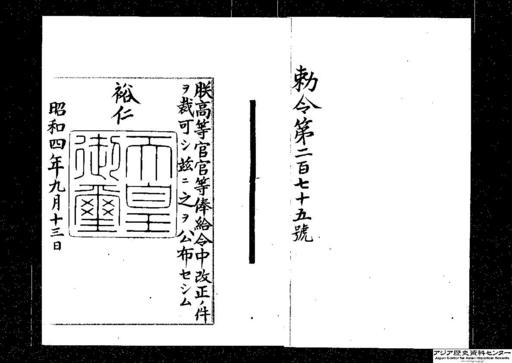 勅令第二百七十五號
朕高等官官等俸給令中改正ノ件
ヲ裁可シ茲ニ之ヲ公布セシム
裕仁
天皇
御璽
昭和四年九月十三日
アジア歴史資料センター
Japan Center for Asian Historical Records